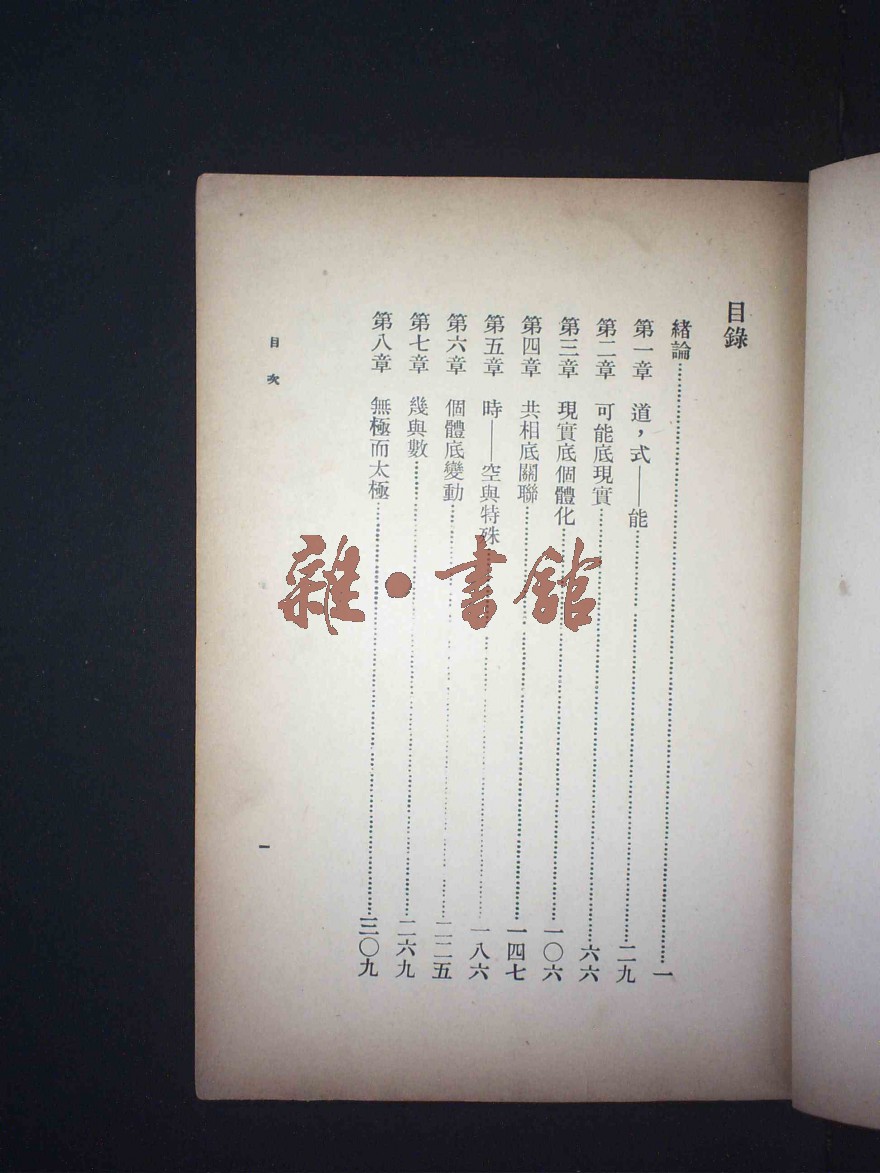 目錄
緒論……一
第一章　道，式——能……二九
第二章　可能底現實……六六
第三章　現實底個體化……一〇六
第四章　共相底關聯……一四七
第五章　時——空與特殊……一八六
第六章　個體底變動……二二五
第七章　幾與數……二六九
第八章　無極而太極……三〇九
目次
一
雜·書館